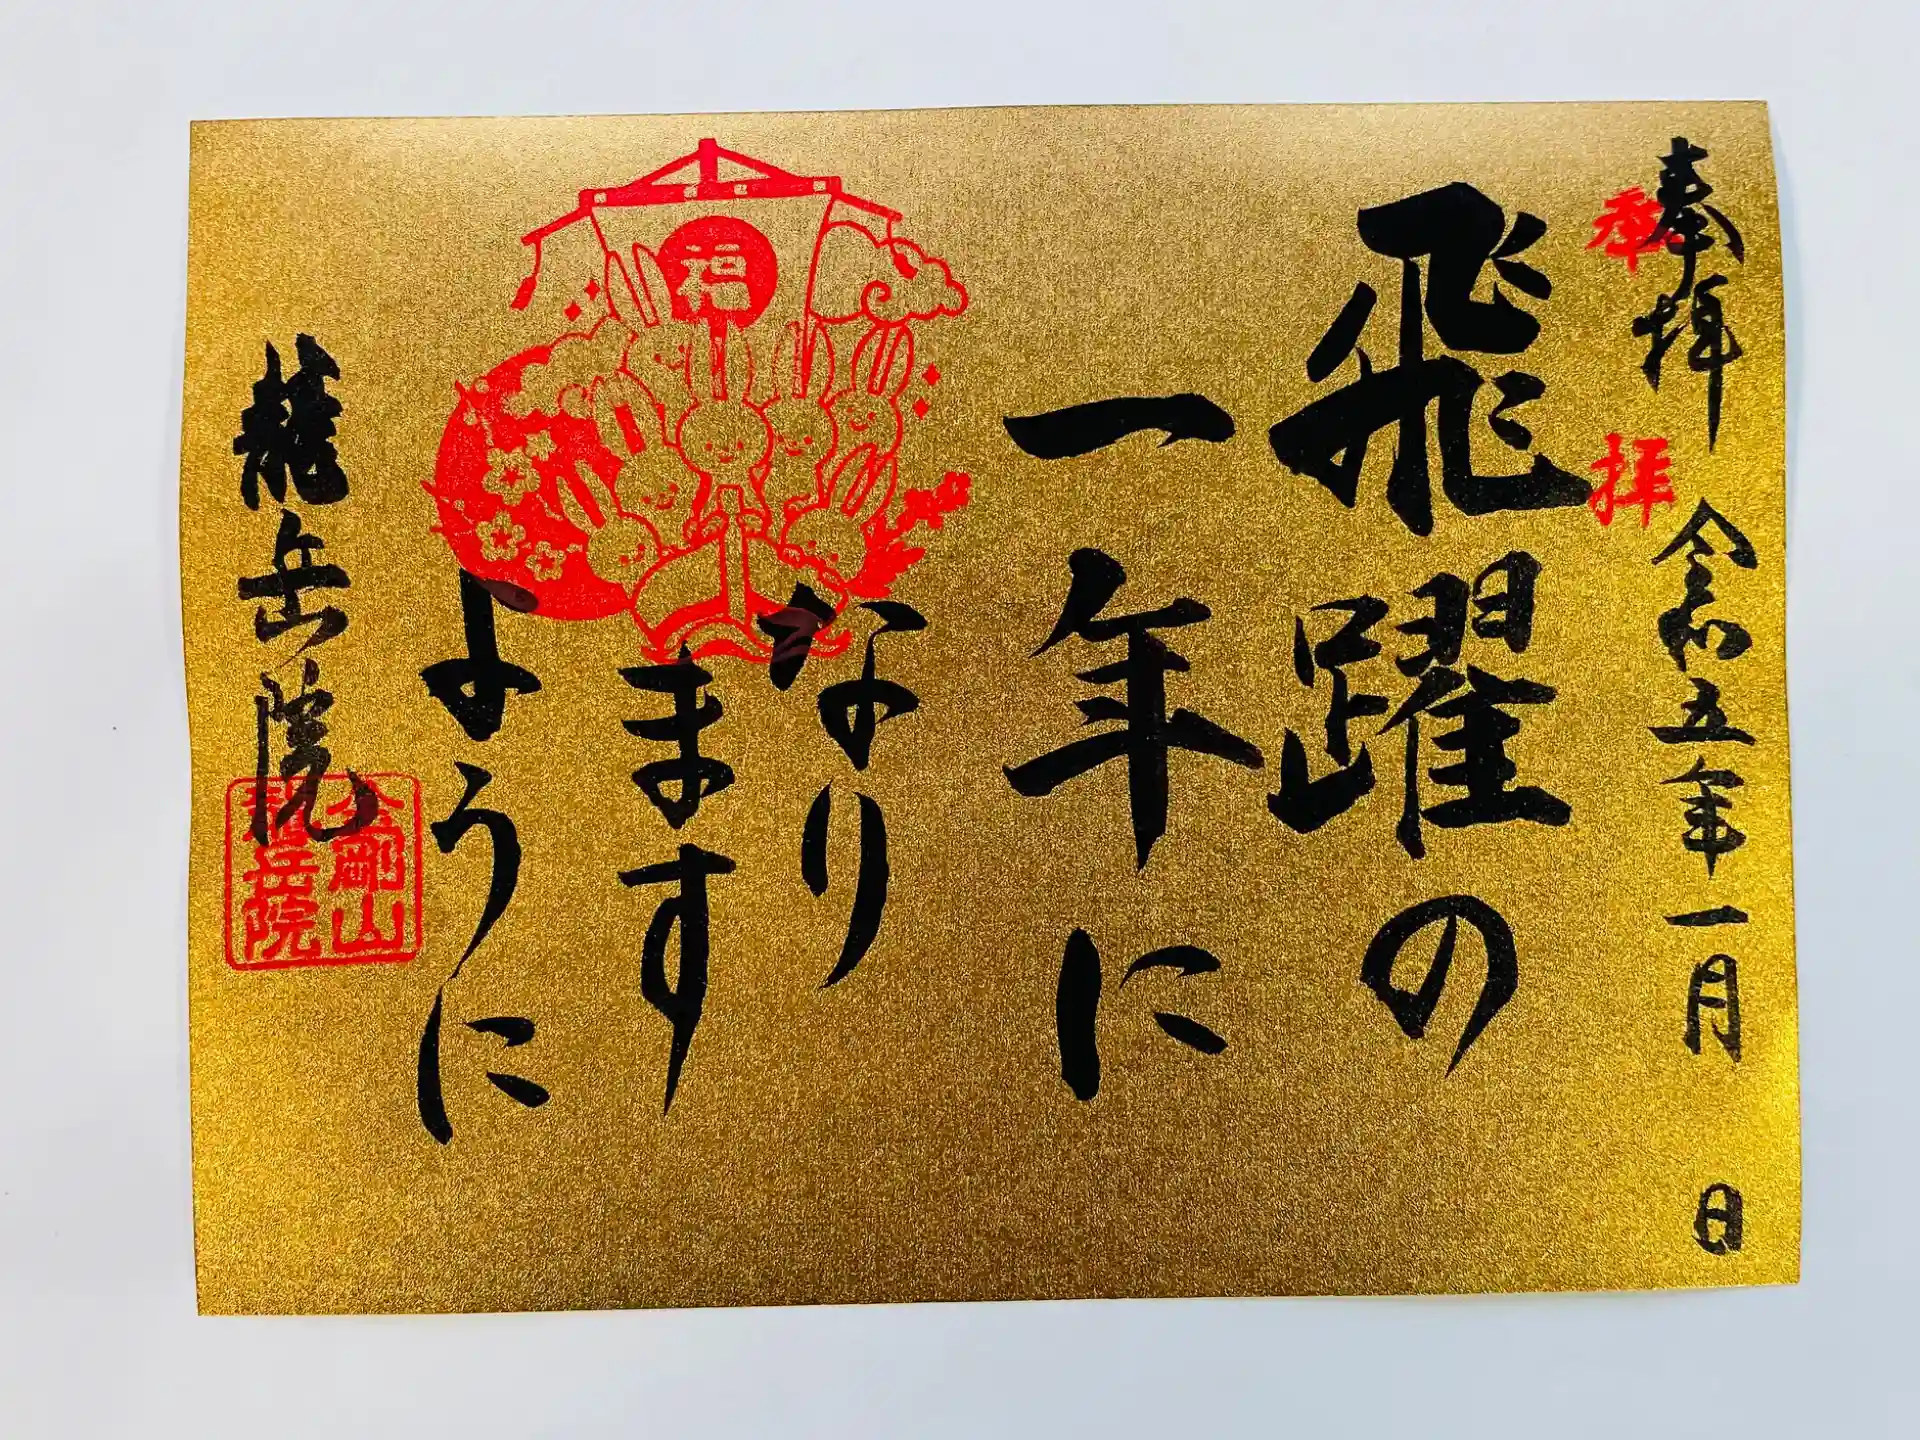 奉拝 令和五年一月 日
奉拝
飛躍の
一年に
なり
ます
ように
福
龍岳院
金剛山
龍岳院